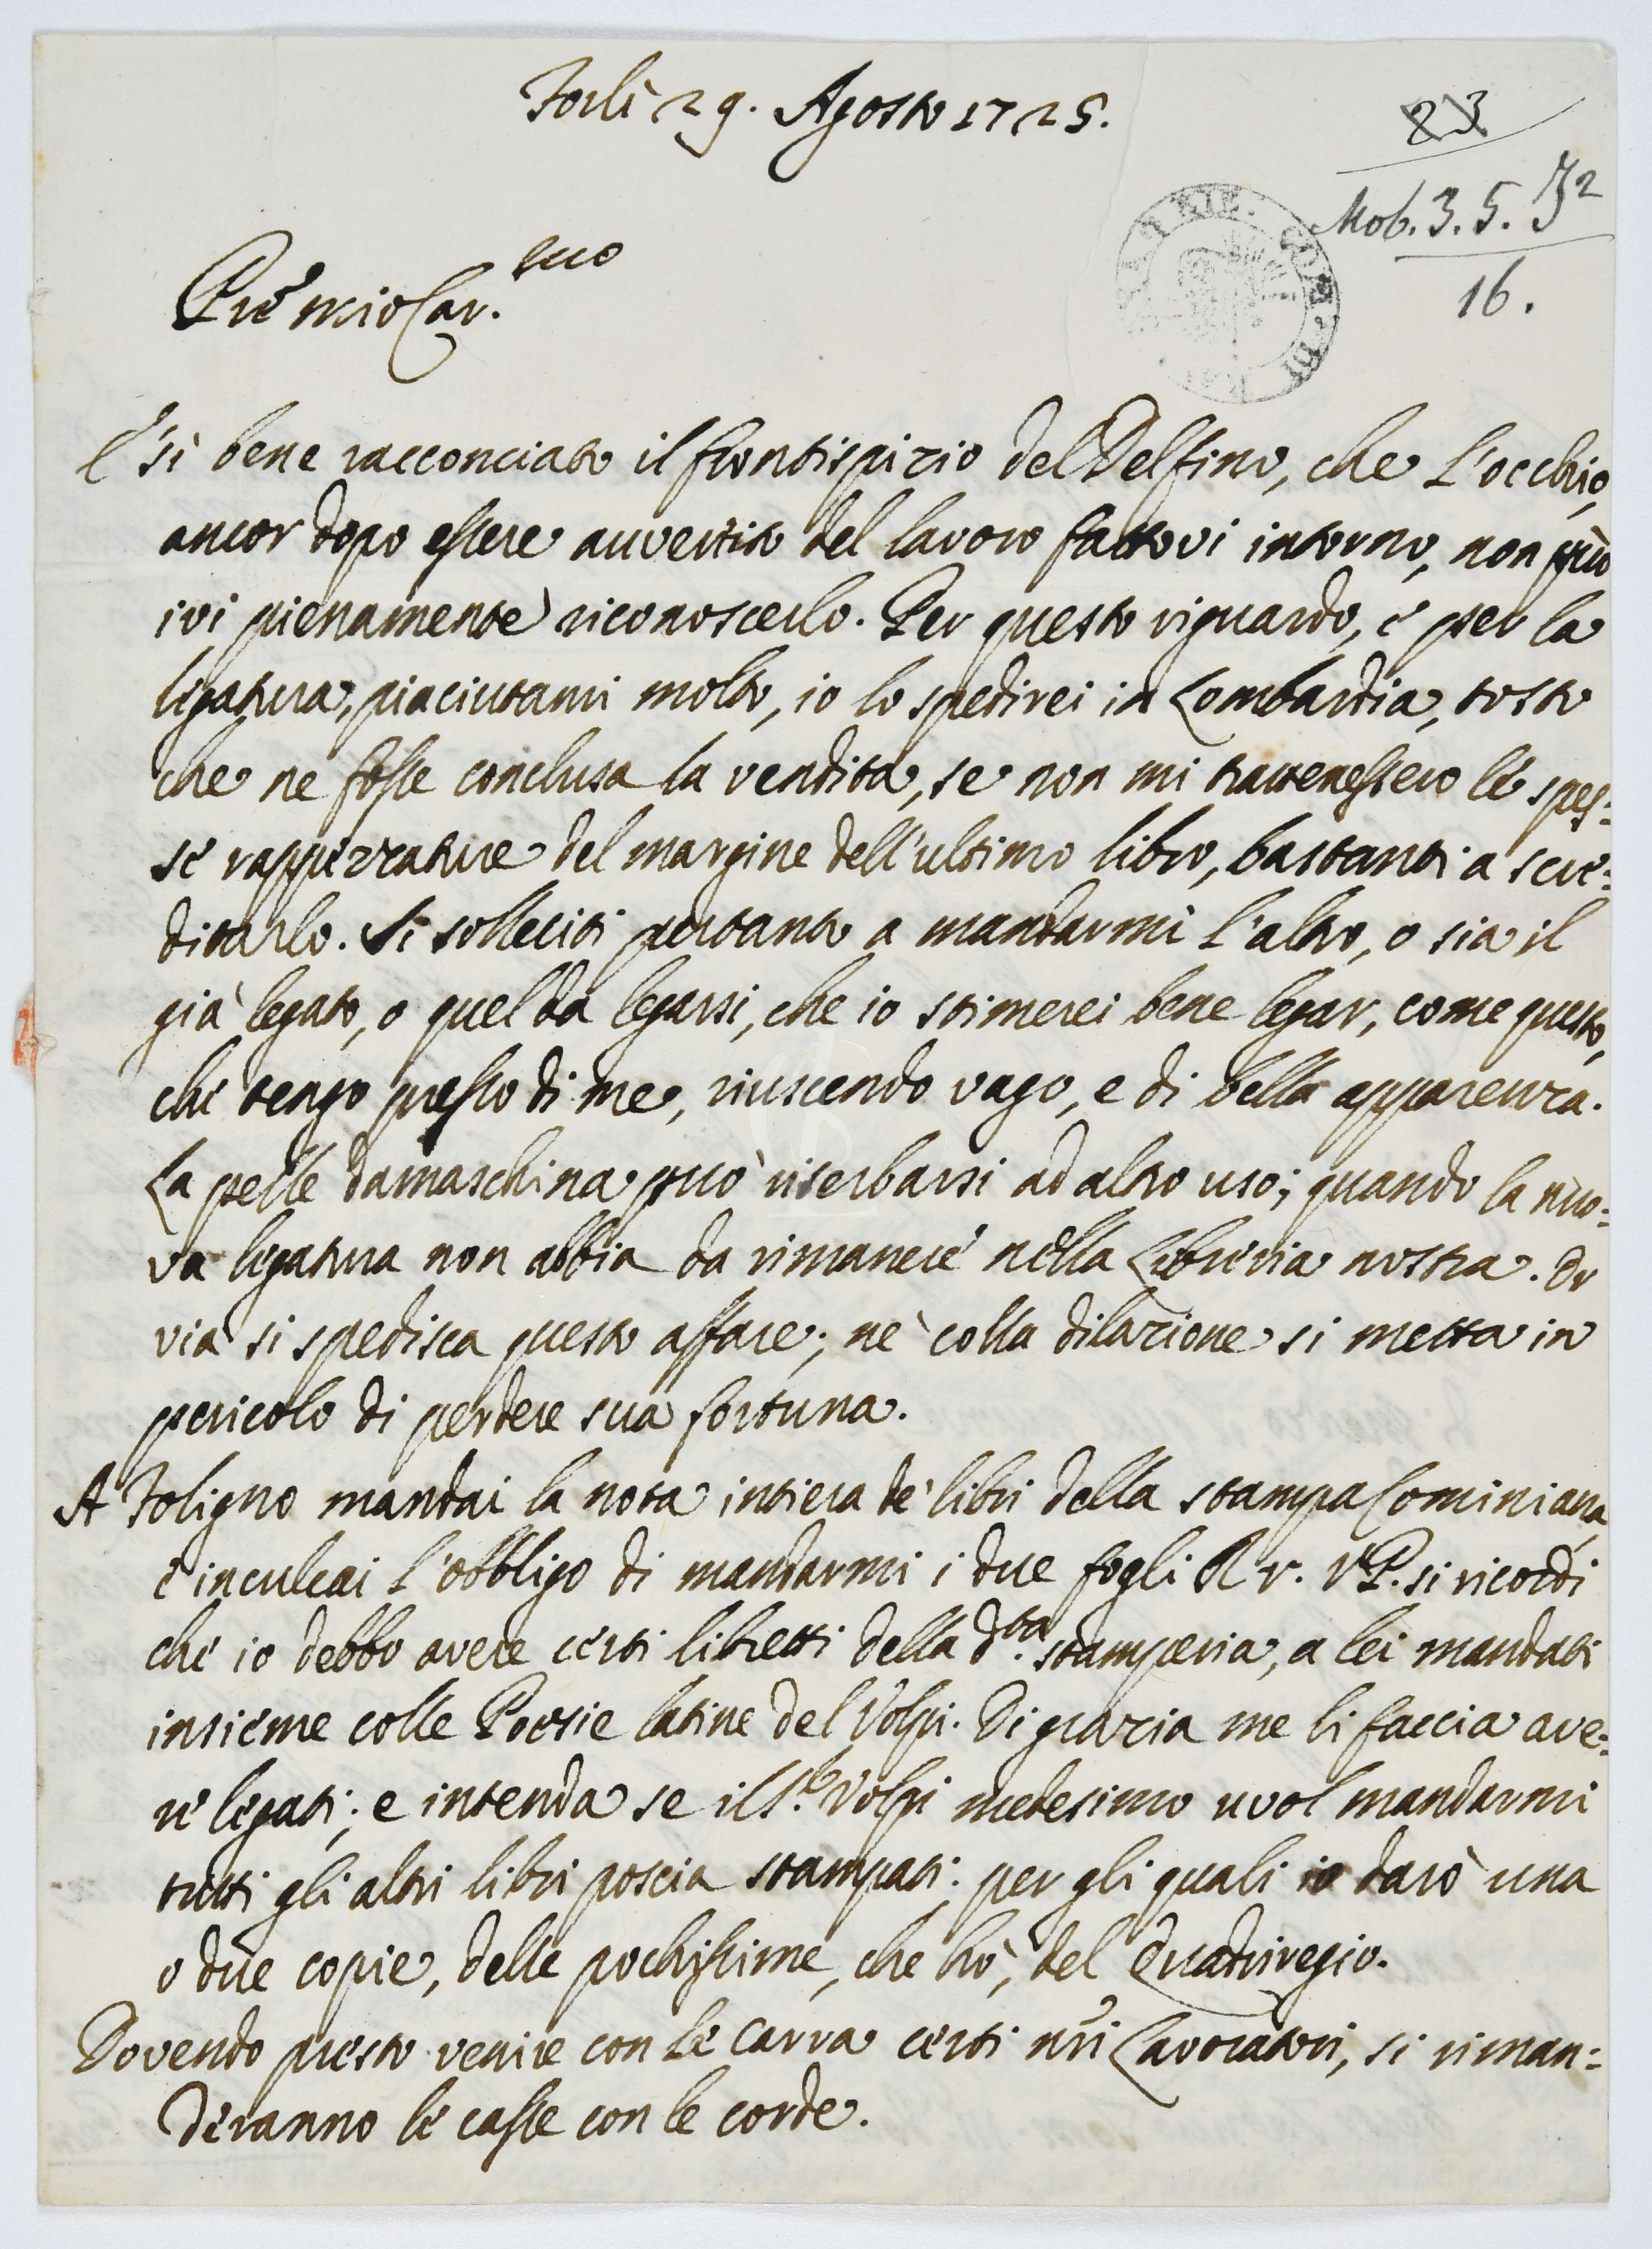 Forlì 29. Agosto 1725.
23
Mob. 3. 5. J2
16.
Pre mio Car.mo
E' sì bene racconciato il frontispizio del Delfino, che l'occhio,
ancor dopo essere avvertito del lavoro fattovi intorno, non può
ivi pienamente riconoscerlo. Per questo riguardo, e per la
ligatura, piaciutami molto, io lo spedirei in Lombardia, tosto
che ne fosse conclusa la vendita, se non mi trattenessero le spes:
se rappezzature del margine dell'ultimo libro, bastanti a scre:
ditarlo. Si solleciti pertanto a mandarmi l'altro, o sia il
già legato, o quel da legarsi, che io stimerei bene legar, come questo,
che tengo presso di me, riuscendo vago, e di bella apparenza.
La pelle damaschina può riserbarsi ad altro uso; quando la nuo:
va legatura non abbia da rimanere nella Libreria nostra. Or
via si spedisca questo affare; nè colla dilazione si metta in
pericolo di perdere sua fortuna.
A Foligno mandai la nota intiera de' libri della stampa Cominiana,
e inculcai l'obbligo di mandarmi i due fogli R r. V.P. si ricordi
che io debbo avere certi libretti della d.ta stamperia, a lei mandati
insieme colle Poesie latine del Volpi. Di grazia me li faccia ave:
re legati; e intenda se il S.r Volpi medesimo vuol mandarmi
tutti gli altri libri poscia stampati: per gli quali io darò una
o due copie, delle pochissime, che hò, del Quadriregio.
Dovendo presto venire con le carra certi nri Lavoratori, si riman:
deranno le casse con le corde.